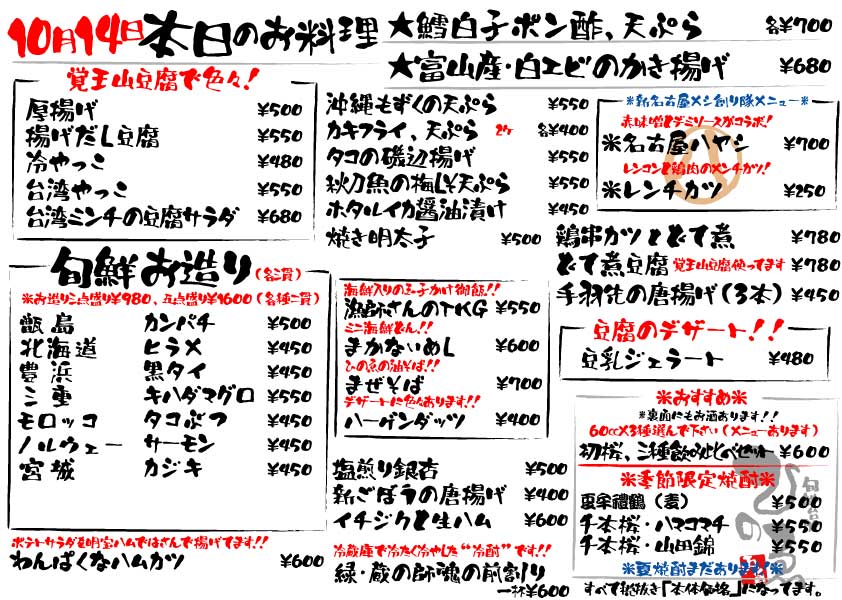 10月14日本日のお料理
★鱈白子ポン酢、天ぷら 各¥700
★富山産・白エビのかき揚げ ¥680
覚王山豆腐で色々!
厚揚げ ¥500
揚げだし豆腐 ¥550
冷やっこ ¥480
台湾やっこ ¥550
台湾ミンチの豆腐サラダ ¥680
沖縄もずくの天ぷら ¥550
カキフライ、天ぷら 2ケ 各¥400
タコの磯辺揚げ ¥550
秋刀魚の梅しそ天ぷら ¥550
ホタルイカ醤油漬け ¥450
焼き明太子 ¥500
※新名古屋メシ創り隊メニュー※
赤味噌とデミソースがコラボ!
※名古屋ハヤシ ¥700
レンコンと鶏肉のメンチカツ!
※レンチカツ ¥250
鶏串カツとどて煮 ¥780
どて煮豆腐 覚王山豆腐使ってます ¥780
手羽先の唐揚げ(3本) ¥450
旬鮮お造り(各二貫)
※お造り三点盛り¥980、五点盛り¥1600(各種二貫)
甑島 カンパチ ¥500
北海道 ヒラメ ¥450
豊浜 黒タイ ¥450
三重 キハダマグロ ¥550
モロッコ タコぶつ ¥450
ノルウェー サーモン ¥450
宮城 カジキ ¥450
海鮮入りの玉子かけ御飯!!
漁師さんのTKG ¥550
ミニ海鮮どん!!
まかないめし ¥600
ひの魚の油そば!!
まぜそば ¥700
デザートに色々あります!!
ハーゲンダッツ ¥400
豆腐のデザート!!
豆乳ジェラート ¥480
※おすすめ※
※裏面にもお酒あります!!
60cc×3種選んで下さい(メニューあります)
初桜、三種飲み比べセット ¥600
※季節限定焼酎※
亜牟禮鶴(麦) ¥500
千本桜・ハマコマチ ¥550
千本桜・山田錦 ¥550
※夏焼酎まだあります※
すべて税抜き「本体価格」になってます。
塩煎り銀杏 ¥500
新ごぼうの唐揚げ ¥400
イチジクと生ハム ¥600
ポテトサラダを明宝ハムではさんで揚げてます!!
わんぱくなハムカツ ¥600
冷蔵庫で冷たく冷やした"冷酎"です!!
緑・蔵の師魂の前割り
一杯¥600